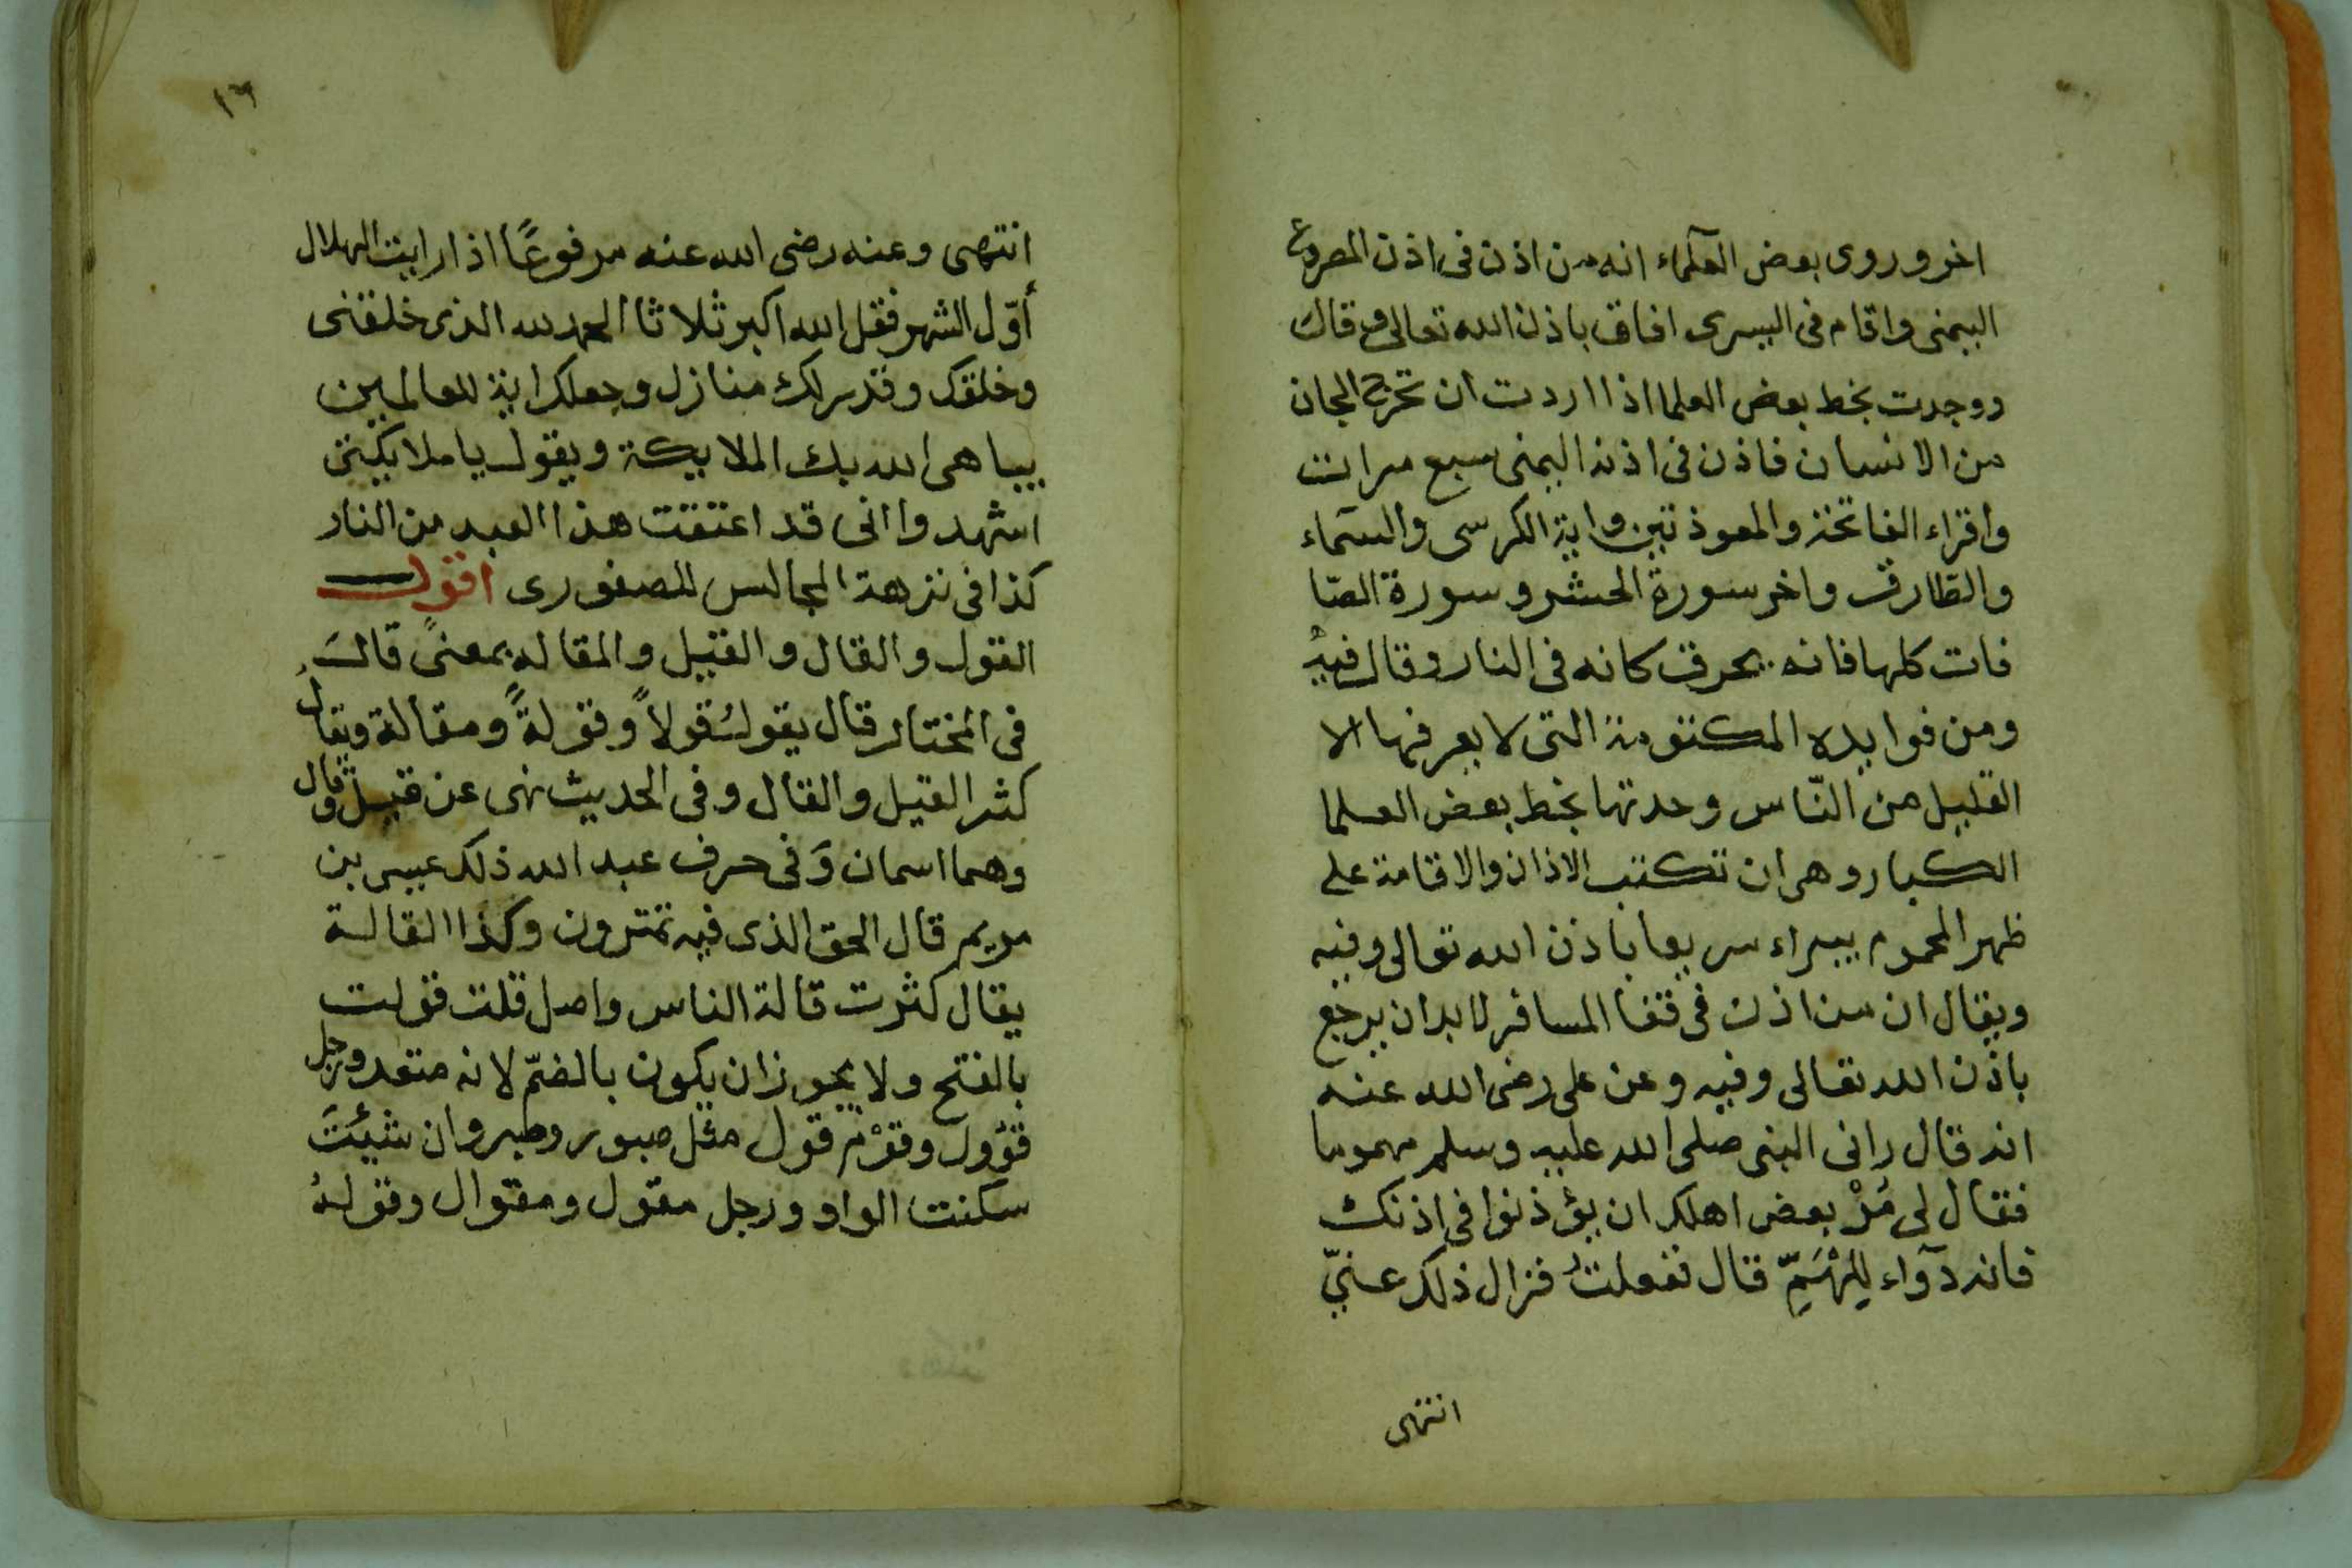 اخر وروى بعض العلماء انه من اذن فى اذن المصروع
اليمنى واقام فى اليسرى افاق باذن الله تعالى وقال
ووجدت بخط بعض العلما اذا اردت ان تخرج الجان
من الانسان فاذن فى اذنه اليمنى سبع مرات
واقراء الفاتحة والمعوذتين واية الكرسى والسماء
والطارق واخر سورة الحشر وسورة الصا
فات كلها فانه يحرق كانه فى النار وقال فيه
ومن فوايده المكتومة التى لا يعرفها الا
القليل من الناس وجدتها بخط بعض العلما
الكبار وهى ان تكتب الاذان والاقامة على
ظهر المحموم يبراء سريعا باذن الله تعالى وفيه
ويقال ان من اذن فى قفا المسافر لا بد ان يرجع
باذن الله تعالى وفيه وعن على رضى الله عنه
انه قال رانى النبى صلى الله عليه وسلم مهموما
فقال لى مُرْ بعض اهلك ان يؤذنوا فى اذنك
فانه دوآء للهَمِّ قال ففعلتُ فزال ذلك عنّي
انتهى
١٦
انتهى وعنه رضى الله عنه مرفوعًا اذا رايت الهلال
أوّل الشهر فقل الله اكبر ثلاثا الحمد لله الذى خلقنى
وخلقك وقدر لك منازل وجعلك اية للعالمين
يباهى الله بك الملايكة ويقول يا ملايكتى
اشهدوا انى قد اعتقت هذا العبد من النار
كذا فى نزهة المجالس للصفورى اقول
القول والقال والقيل والمقاله بمعنىً قالَ
فى المختار قال يقولُ قولاً وقولةً ومقالة ويقال
كثر القيل والقال وفى الحديث نهى عن قيل وقال
وهما اسمان وَفى حرف عبد الله ذلك عيسى بن
مريم قال الحق الذى فيه تمترون وكذا القالة
يقال كثرت قالة الناس واصل قلت قولت
بالفتح ولا يجوز ان يكون بالضمّ لانه متعد ورجل
قؤول وقوْم قول مثل صبور وصبر وان شيئتَ
سكنت الواو ورجل مقول ومقوال وقولهُ